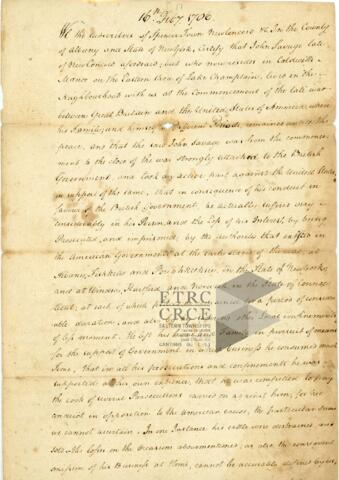 16th Feby 1786.
We the subscribers of Spencer Town New Concord &c In the County
of Albany and State of New York, Certify that John Savage late
of New Concord aforesaid; but who now resides in Caldwells
Manor on the Eastern Area of Lake Champlain, lived in the
Neighbourhood with us at the Commencement of the late war
between Great Britain and the United States of America where
his Family, and himself at different Periods, remained until the
peace, and that the said John Savage was from the commence-
ment to the close of the war strongly attached to the British
Government, and took an active part against the United States,
in support of the same, that in consequence of his conduct in
favour of the British Government, he actually suffered very
considerably in his Person and the loss of his Interest, by being
Prosecuted, and imprisoned by the authorities that existed in
the American Government at the early stage of the war, at
Albany, Fishkill and Poughkeepsie, in the State of New York,
and at Windsor, Hartford, and Norwich in the State of Connec-
ticut; at each of which places he remained for a period of consider-
able duration, and at other Local imprisonments
of less moment. He left his home and Family in pursuit of means
for the support of Government in which business he consumed much
time, that in all his prosecutions and confinements he was
supported at his own expence, that he was compelled to pay
the costs of several Prosecutions carried on against him, for his
conduct in opposition to the american cause, the particular sums
we cannot ascertain. In one Instance his cattle were distrained and
sold. His losses on the occasions abovementioned; as also the consequent
omission of his Business at Home, cannot be accurately defined by us,
ETRC
CRCE
EASTERN TOWNSHIPS